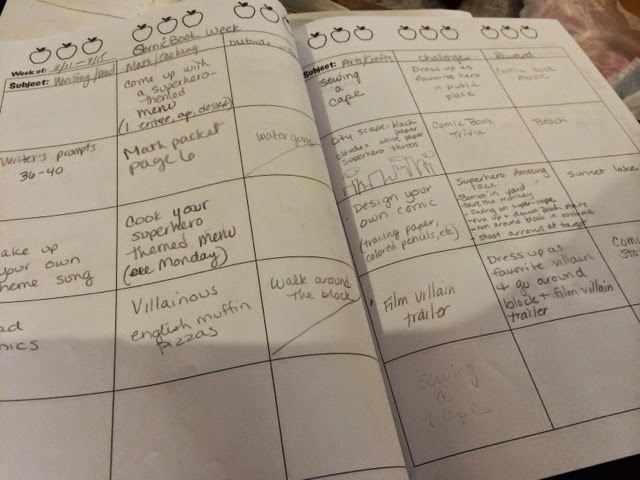 Week of: 8/11 - 8/15
Comic Book Week
Subject: Writing/
Math/Cooking
outside
come up with
a superhero-
themed
menu
(1 entree, app, dessert)
Writer's prompts
36-40
Math packet
page 6
water guns
ake up
your own
heme song
Cook your
superhero
themed menu
(see Monday)
ad
mics
Villainous
english muffin
pizzas
Walk around
the block
Subject: Arts/Crafts
Challenge
Reward
sewing
a
cape
Dress up as
favorite hero
in public
place
Comic Book
movie
City scape = black
paper
clouds = white paper
superhero photos
Comic Book
Trivia
Beach
Design your
own comic
(tracing paper,
colored pencils, etc)
Superhero Amazing
Race
- Bombs in yard
- save the monkey
- swing on super-rope
- run up + down back stairs
- run around block in costume
- shoot arrows at target
sunset lake
Film villain
trailer
Dress up as
favorite villain
+ go around
block + film villain
trailer
Comi
Sto
sewing
a
cape